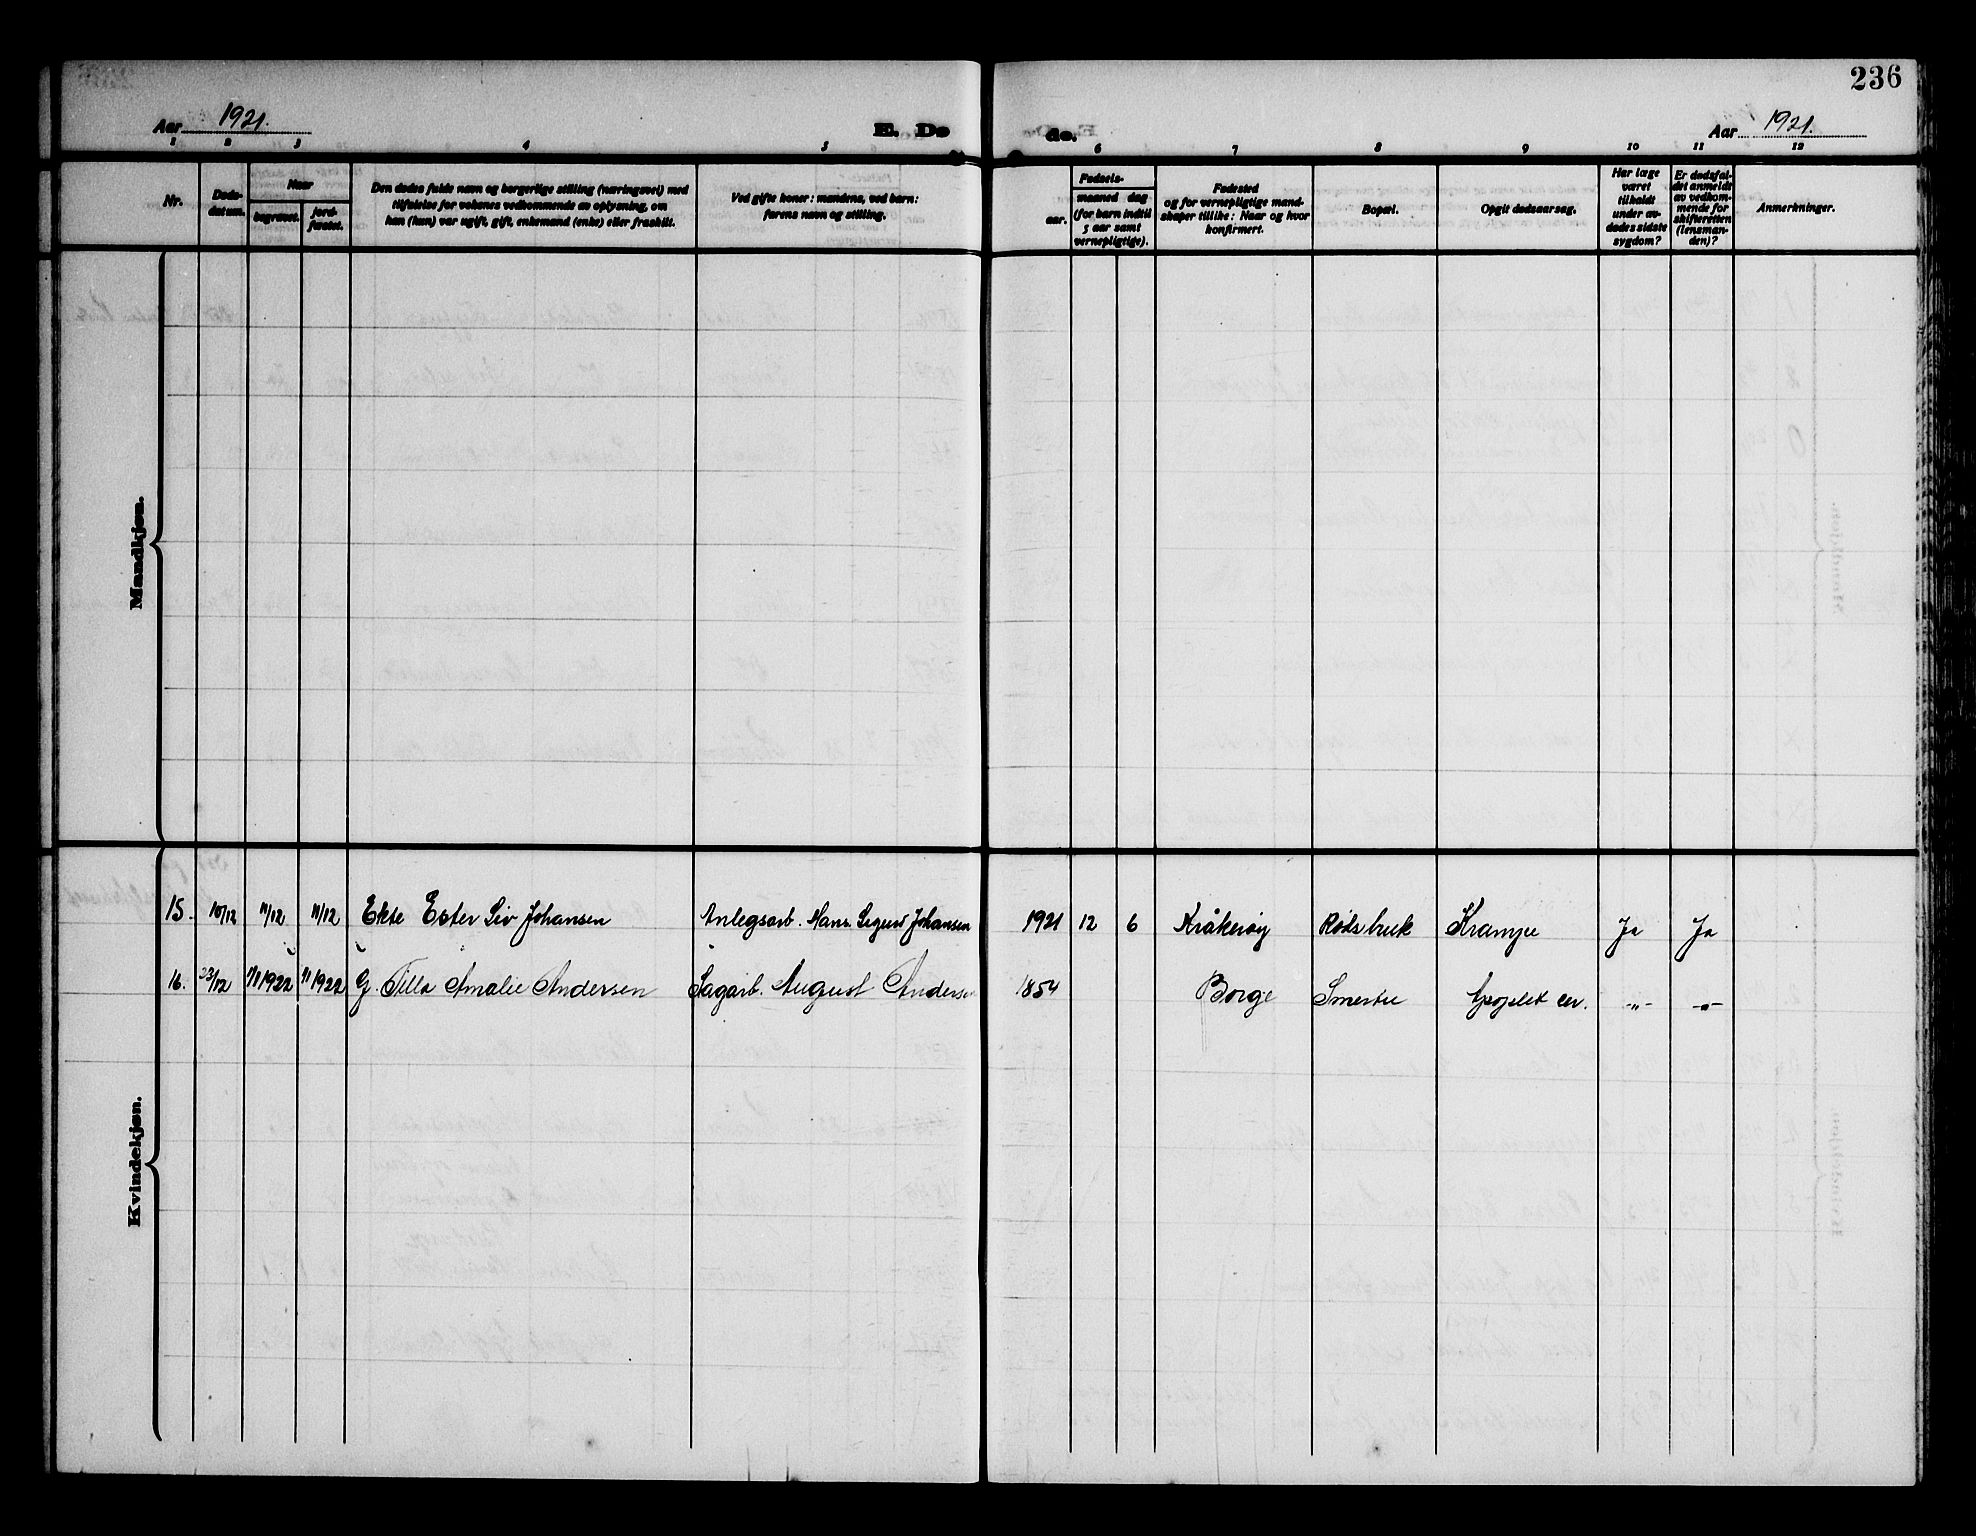 236
Aar 1921.
E. Dø
de.
Aar 1921.
1 2 3 4 5
6 7 8 9 10 11 12
Nr.
Døds-
datum.
Naar
begravet.
jord-
fæstet.
Den dødes fulde navn og borgerlige stilling (næringsvei) med
tilføielse for voksnes vedkommende av oplysning, om
han (hun) var ugift, gift, enkemand (enke) eller fraskilt.
Ved gifte koner: mandens, ved barn:
farens navn og stilling.
Fødsels-
aar.
maaned dag
(for barn indtil
5 aar samt
vernepligtige).
Fødested
og for vernepligtige mand-
skaper tillike: Naar og hvor
konfirmert.
Bopæl.
Opgit dødsaarsag.
Har læge
været
tilkaldt
under av-
dødes sidste
sygdom?
Er dødsfal-
det anmeldt
av vedkom-
mende for
skifteretten
(lensman-
den)?
Anmerkninger.
Mandkjøn.
Kvindekjøn.
15. 10/12 11/12 11/12 Ekte Ester Siv Johansen Anlegsarb. Hans Sigurd Johansen 1921 12 6 Kråkerøy Rødsbrek Krampe Ja Ja
16. 23/12 1/1 1922 1/1 1922 G. Tilla Amalie Andersen Sagarb. August Andersen 1854 Borge Smertu Apoplek cer. -"- -"-